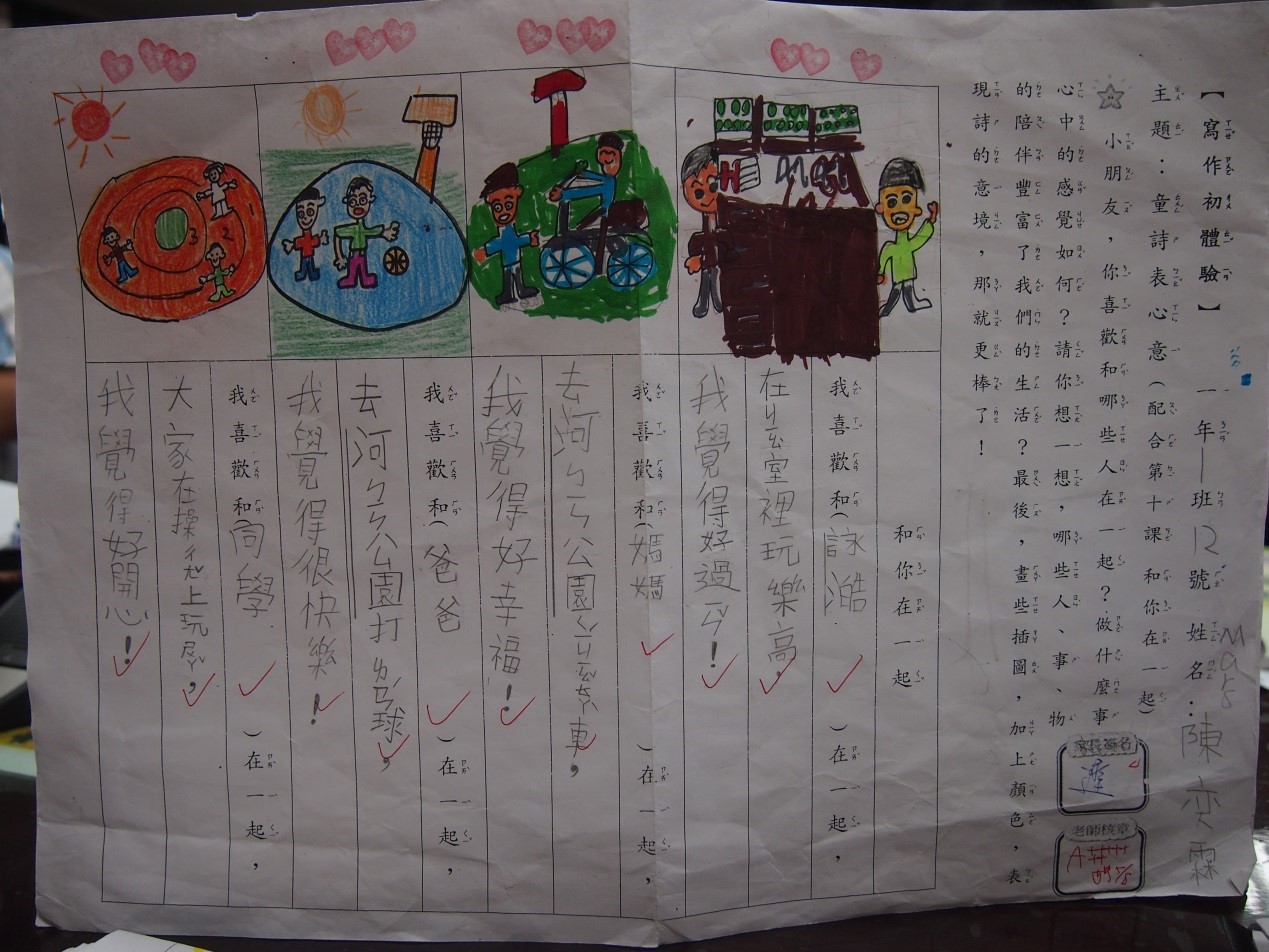 【寫作初體驗】 一年一班12號 姓名：陳奕霖
Mars
主題：童詩表心意(配合第十課 和你在一起)
小朋友，你喜歡和哪些人在一起？做什麼事
心中的感覺如何？請你想一想，哪些人、事、物
的陪伴豐富了我們的生活？最後，畫些插圖，加上顏色，表
現詩的意境，那就更棒了！
家長簽名
老師核章
和你在一起
我喜歡和(詠澔)在一起，
在ㄐㄠ室裡玩樂高，
我覺得好過ㄢ！
我喜歡和(媽媽)在一起，
去河ㄅㄢ公園ㄐㄧㄠ車，
我覺得好幸福！
我喜歡和(爸爸)在一起，
去河ㄅㄢ公園打ㄌㄢ球，
我覺得很快樂！
我喜歡和(同學)在一起，
大家在操ㄔㄤ上玩，
我覺得好開心！
3 2